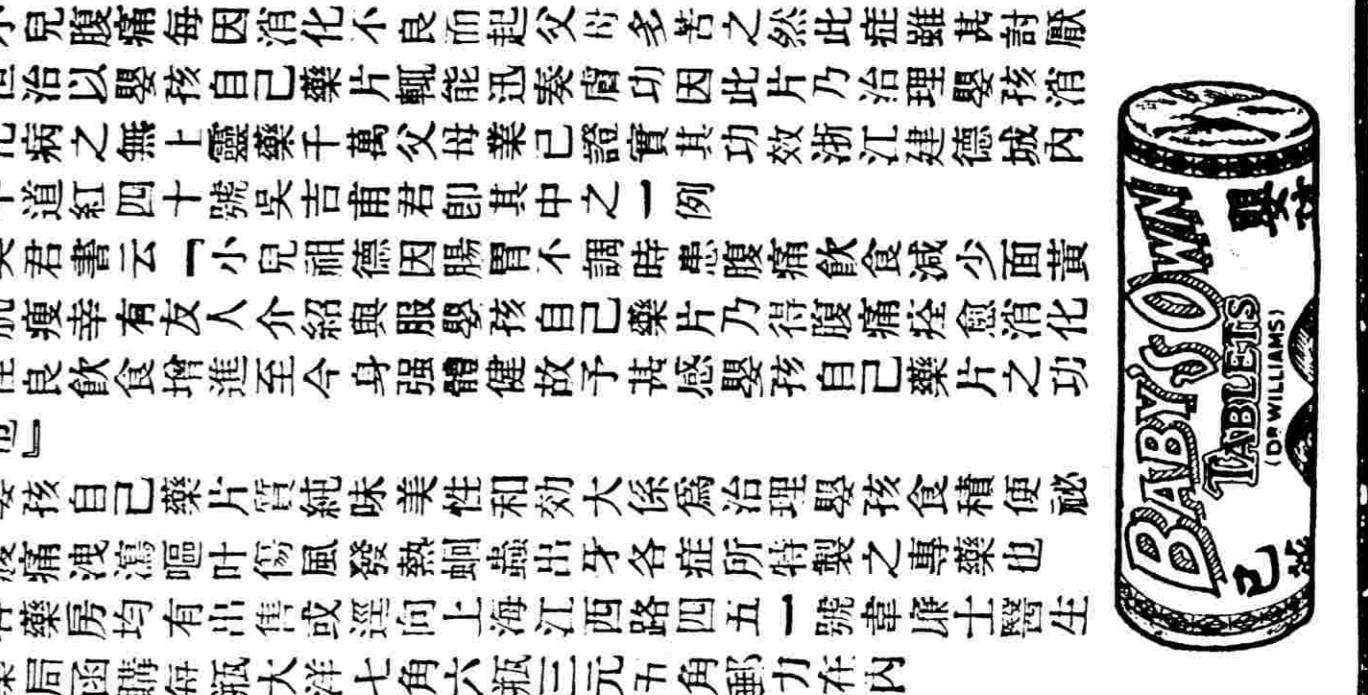 兒腹痛每因消化不良而起父母多苦之然此症雖甚討厭
治以嬰孩自己藥片輒能迅奏膚功因此片乃治理嬰孩消
病之無上靈藥千萬父母業已證實其功效浙江建德城內
道紅四十號吳吉甫君卽其中之一例
君書云「小兒祖德因腸胃不調時患腹痛飲食減少面黃
瘦幸有友人介紹與服嬰孩自己藥片乃得腹痛痊愈消化
良飲食增進至今身强體健故予甚感嬰孩自己藥片之功
也』
孩自己藥片質純味美性和効大係爲治理嬰孩食積便祕
痛洩瀉嘔吐傷風發熱蛔蟲出牙各症所特製之專藥也
藥房均有出售或逕向上海江西路四五一號韋廉士醫生
局函購每瓶大洋七角六瓶三元五角郵力在內
BABY'S OWN
TABLETS
(DR WILLIAMS)
嬰孩
己